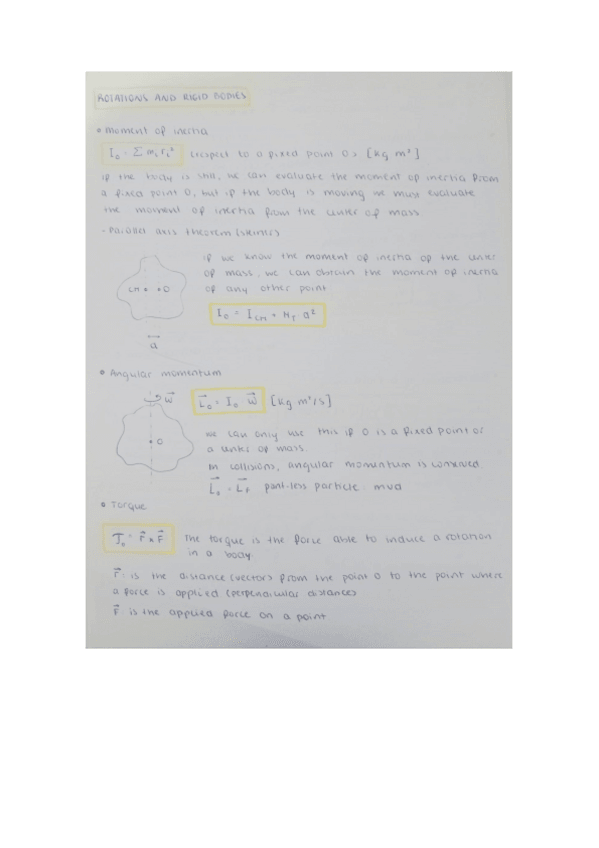 ROTATIONS AND RIGID BODIES
• Moment of inertia
I₀ = Σ mᵢ rᵢ² (respect to a fixed point O) [kg m²]
if the body is still, we can evaluate the moment of inertia from
a fixed point O, but if the body is moving we must evaluate
the moment of inertia from the center of mass
- Parallel axis theorem (Steiner)
if we know the moment of inertia of the center
of mass, we can obtain the moment of inertia
of any other point
CM O
I₀ = I_CM + M_T d²
d
• Angular momentum
w⃗
L⃗₀ = I₀ w⃗ [kg m²/s]
we can only use this if O is a fixed point or
a center of mass
O
In collisions, angular momentum is conserved
L⃗₀ = L⃗_F particle: mvd
• Torque
τ₀ = r⃗ x F⃗ The torque is the force able to induce a rotation
in a body
r⃗ is the distance (vector) from the point O to the point where
a force is applied (perpendicular distance)
F⃗ is the applied force on a point